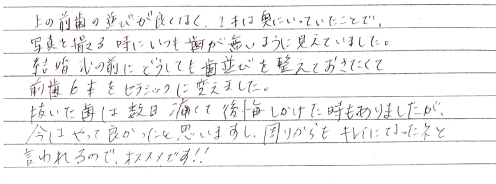 上の前歯の並びが良くなく、1本は奥にいっていたことで、
写真を撮る時にいつも歯が無いように見えていました。
結婚式の前にどうしても歯並びを整えておきたくて
前歯6本をセラミックに変えました。
抜いた歯は数日痛くて後悔しかけた時もありましたが、
今はやって良かったと思いますし、周りからもキレイになったネと
言われるので、オススメです!!